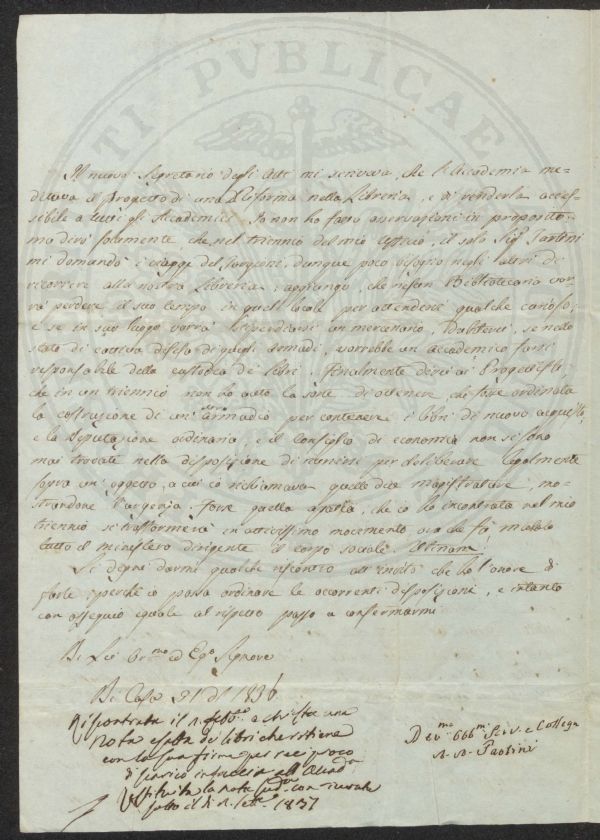 Il nuovo Segretario degli atti mi scriveva, che l'Accademia me-
ditava il progetto di una Riforma nella Libreria, e di renderla acces-
sibile a tutti gli Accademici. Io non ho fatto osservazioni in proposito
ma dirò solamente che nel triennio del mio Officio, il solo Sigr Tartini
mi domandò i viaggi del Targioni, dunque poco bisogno negli altri di
ricorrere alla nostra Libreria: aggiungo, che nissun Bibliotecario vor-
rà perdere il suo tempo in quel locale per attendere qualche
e se in suo luogo vorrà un mercenario, se nello
stato di cattiva difesa di quegli armadj, vorrebbe un accademico farsi
responsabile della custodia de' libri. Finalmente dirò ai Progettisti
che in un triennio non ho avuto la sorte di ottenere, che fosse ordinata
la costruzione di un altro armadio per contenere i libri di nuovo acquisto,
e la Deputazione ordinaria, e il Consiglio di economia non si sono
mai trovate nella disposizione di riunirsi per deliberare legalmente
sopra un oggetto, a cui io richiamava quelle due magistrature, mo-
strandone l'urgenza. Forse quella apatia, che io ho incontrata nel mio
triennio si trasformerà in attivissimo movimento ora che fu mutato
tutto il ministero dirigente il corpo sociale. Utinam
Si degni darmi qualche riscontro all'invito che ho l'onore di
farle perchè io possa ordinare le occorrenti disposizioni, e intanto
con ossequio eguale al rispetto passo a confermarmi
Di Lei Ornmo ed Ego Signore
Di Casa 31 dl 1836
Riscontrata il febbo e chiesta una
Nota esatta dei libri che ritiene
con la sua firma per reciproco
discarico
Restituita la nota sudda con
sotto il dì 1837
Devmo obbmo Serv. e Collega
Paolini
PUBLICAE